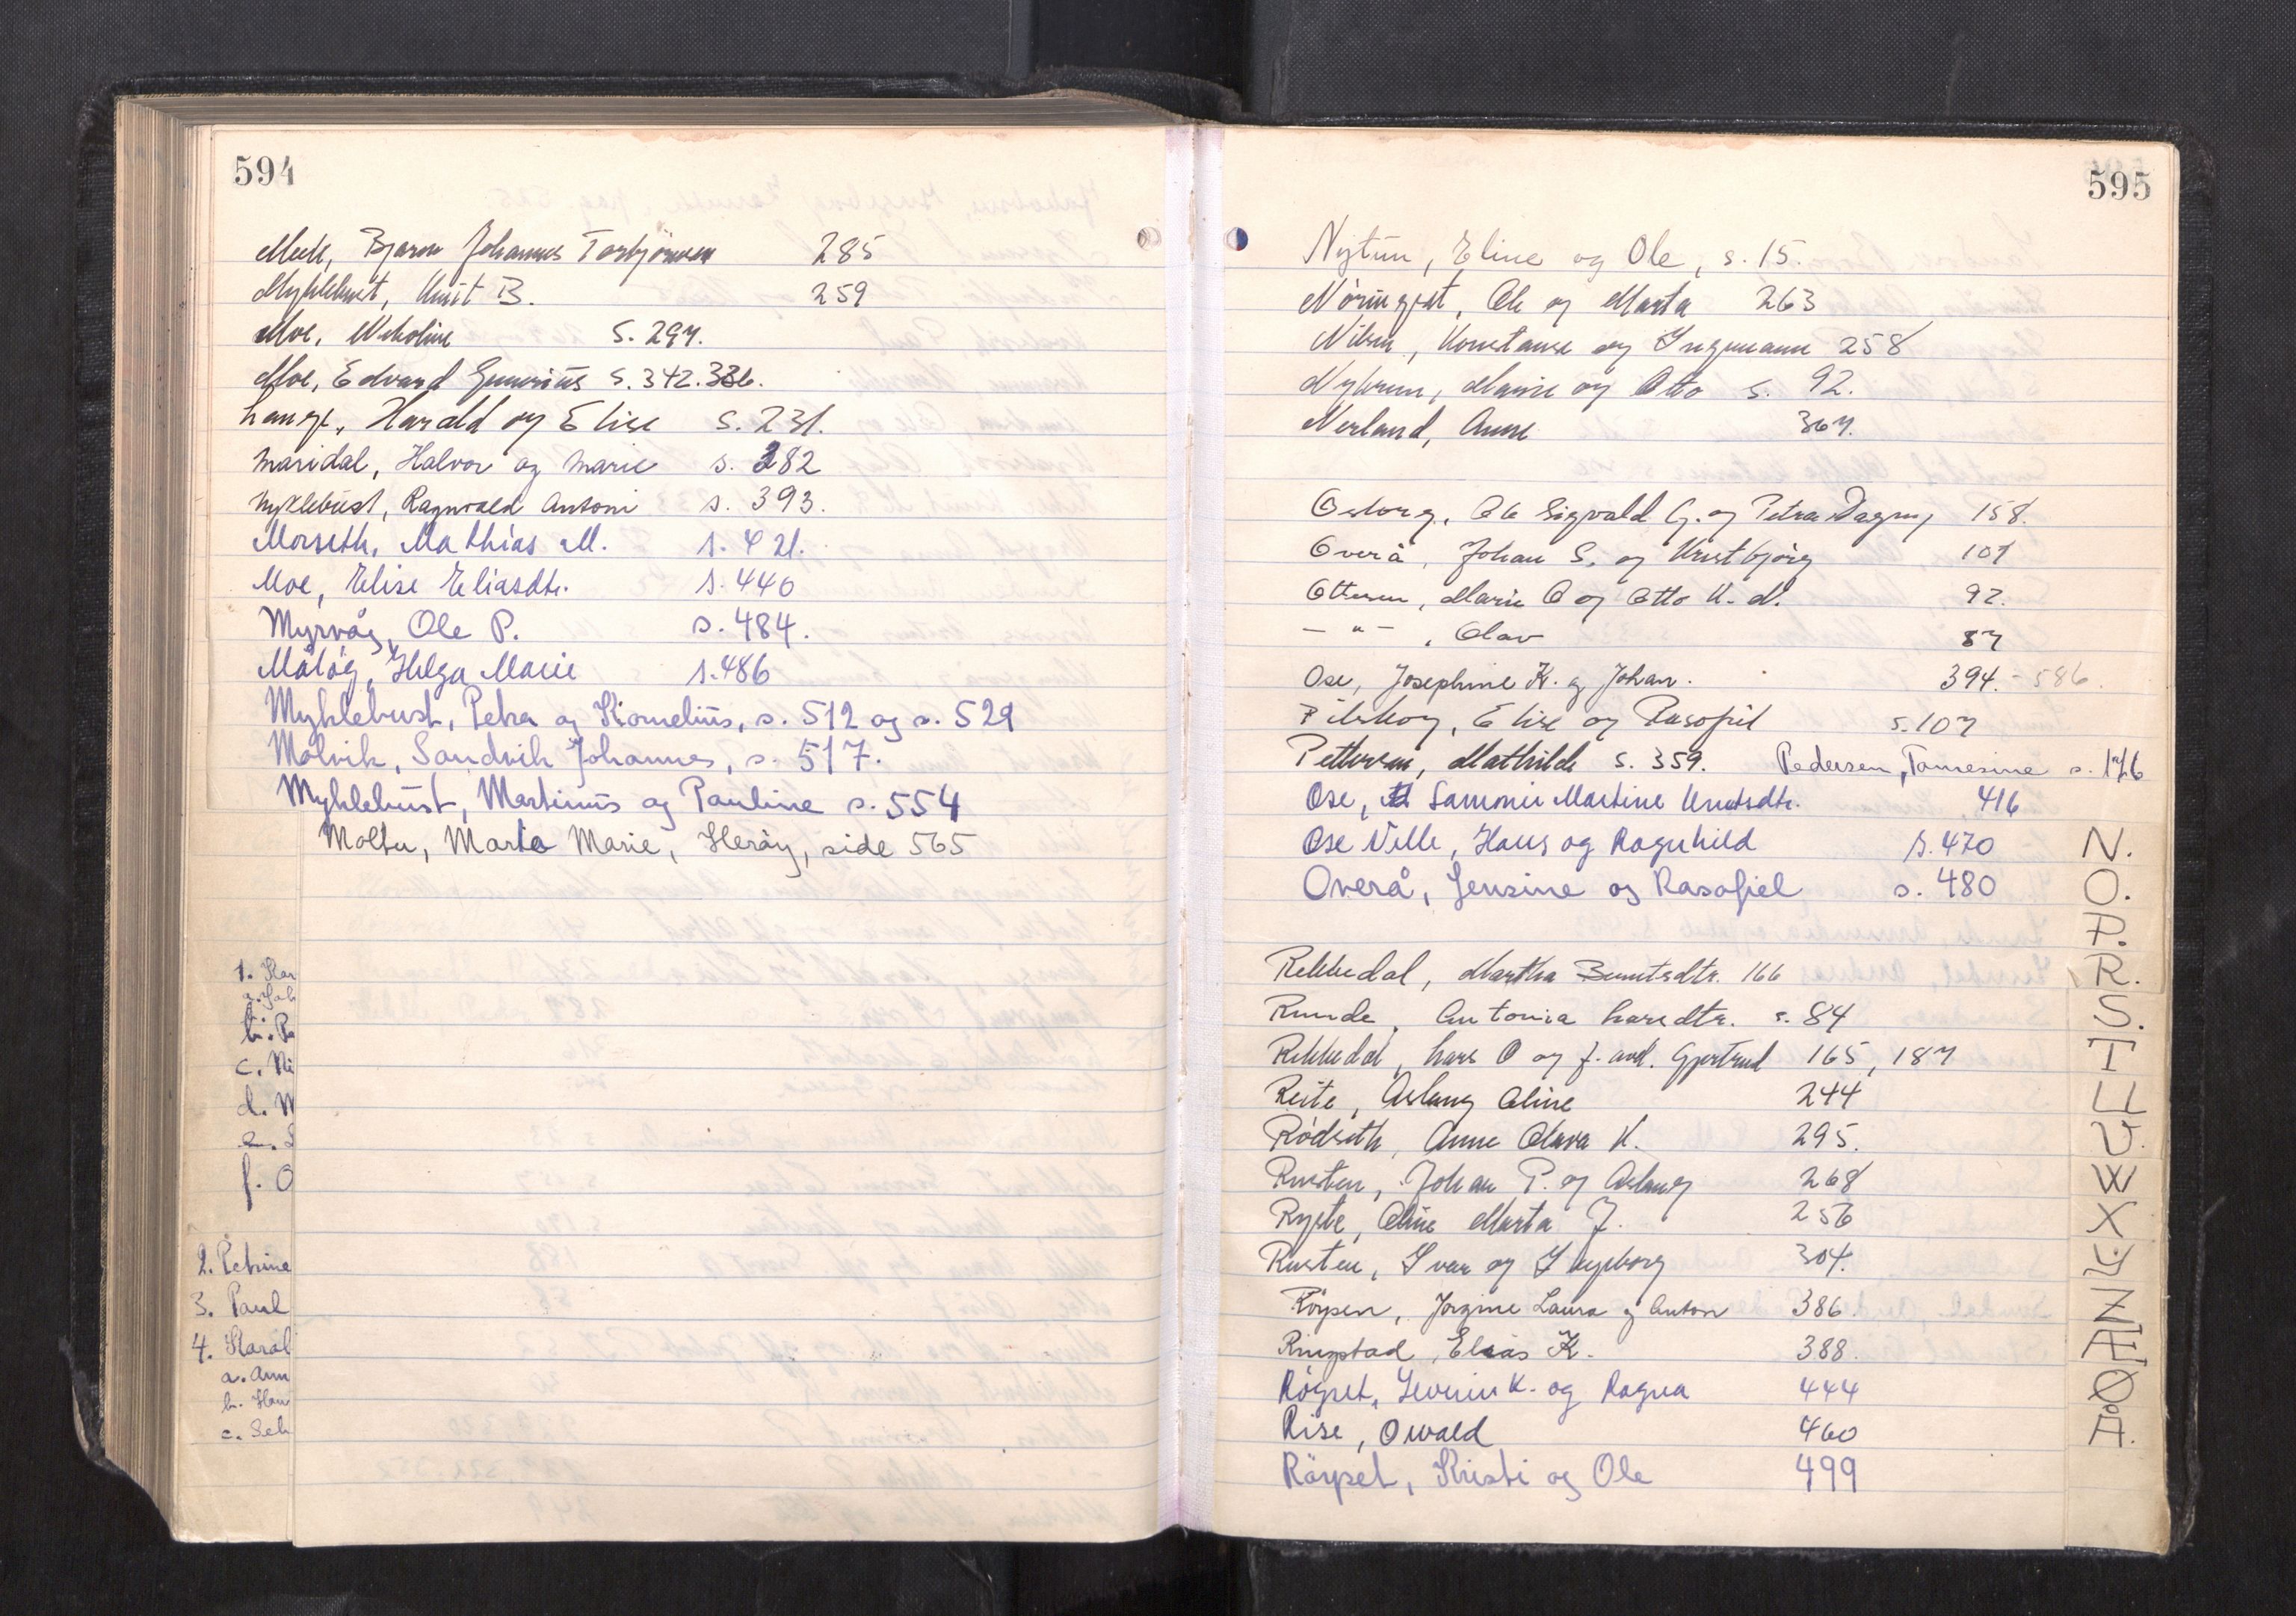 594
Meek, Bjarne Johannes Torbjörnsen 285
Myklebust, Knut B. 259
Moe, Nikoline S. 297.
Moe, Edvard Gunerius S. 342. 336.
Lange, Harald og Elise S. 231.
Maridal, Halvor og Marie s. 382
Myklebust, Ragnvald Antoni s. 393.
Morseth, Mathias M. s. 421.
Moe, Elise Eliasdtr. s. 440
Myrvåg, Ole P. s. 484.
Måløy, Helga Marie s. 486
Myklebust, Petra og Kornelius, s. 512 og s. 529
Molvik, Sandvik Johannes, s. 517.
Myklebust, Martinus og Pauline s. 554
Moltu, Marta Marie, Herøy, side 565
1. Kar
a. Joh
b. Pe
c. Ni
d. M
e. S
f. O
2. Petrine
3. Paul
4. Karol
a. Ann
b. Han
c. Seh
595
Nytun, Eline og Ole, s. 15.
Nöringset, Ole og Marta 263
Nilsen, Konstanse og Ingmann 258
Nybrun, Marie og Otto s. 92.
Nerland, Anne 367.
Osborg, Ole Sigvald G. og Petra Dagny 158.
Overå, Johan S. og Kristbjörg 107
Ottesen, Marie O og Otto K. M. 92.
— " — , Olav 87
Ose, Josephine K. og Johan. 394. - 586
Pilskog, Elise og Rasofiel s. 107
Pettersen, Mathilde s. 359. Pedersen, Tomesine s. 176
Ose, Samonie Martine Knutsdtr. 416
Ose Velle, Hans og Ragnhild s. 470
Overå, Jensine og Rasofiel s. 480
Rekkedal, Martha Berntsdtr. 166
Runde, Antonia Larsdtr. s. 84
Rekkedal, Lars O og f. and. Gjertrud 165, 187
Reite, Aslaug Oline 244
Rødseth, Anne Olava K. 295.
Rusten, Johan P. og Aslaug 268
Ryste, Oline Marta J. 256
Rusten, Ivar og Ingeborg 304.
Röysen, Jorgine Laura og Anton 386.
Ringstad, Elias K. 388.
Røyset, Severin K. og Ragna 444
Rise, Oswald 460
Röyset, Kristi og Ole 499
N.
O.
P.
R.
S.
T
U
V.
W
X
Y.
Z
Æ
Ø
Å.